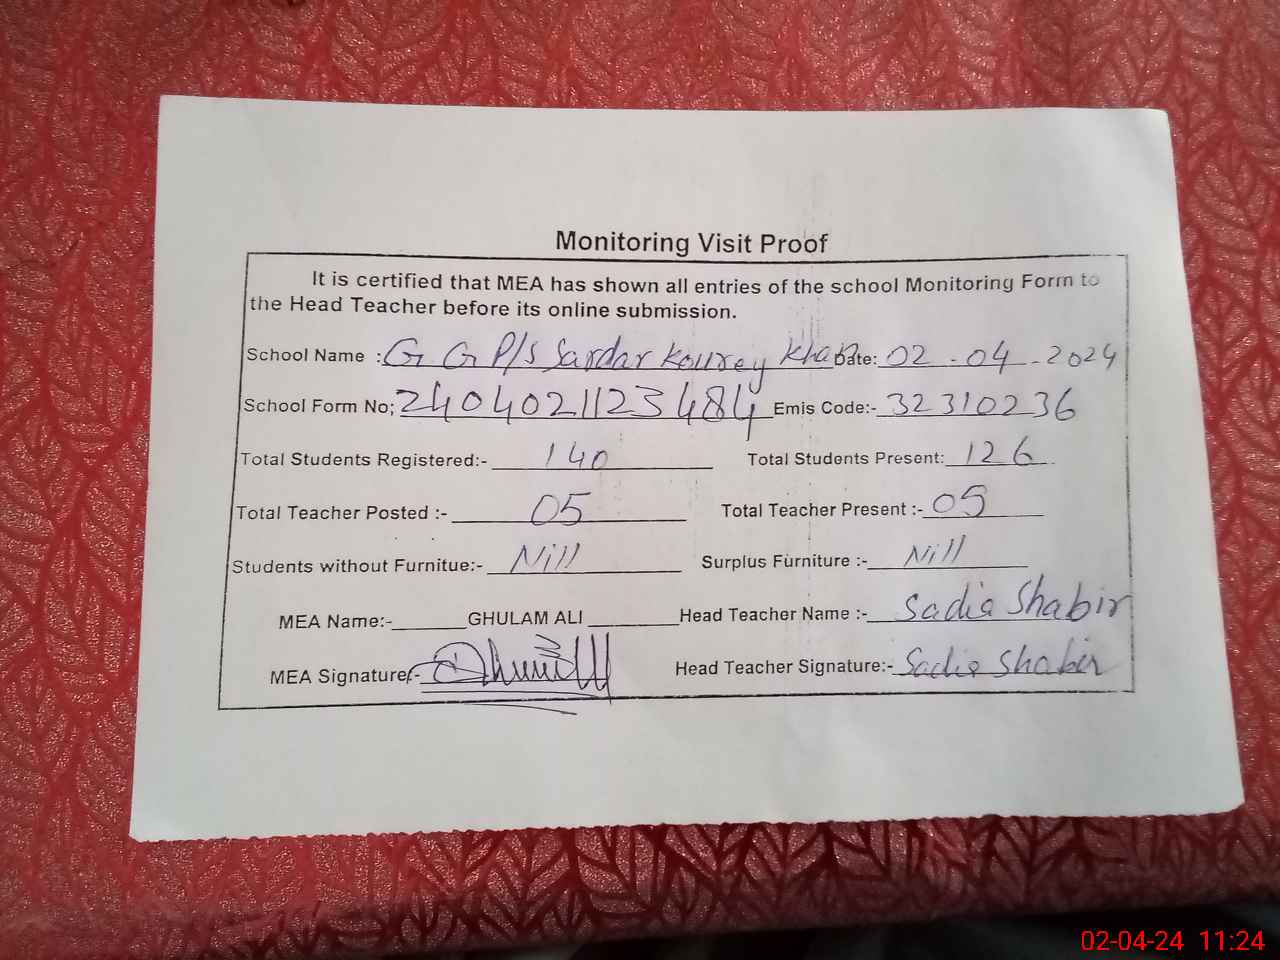 Monitoring Visit Proof
It is certified that MEA has shown all entries of the school Monitoring Form to
the Head Teacher before its online submission.
School Name : G G P/S Sardar Kourey Khan Date: 02-04-2024
School Form No; 2404021123484 Emis Code:- 32310236
Total Students Registered:- 140 Total Students Present: 126
Total Teacher Posted :- 05 Total Teacher Present :- 05
Students without Furnitue:- Nill Surplus Furniture :- Nill
MEA Name:- GHULAM ALI Head Teacher Name :- Sadia Shabir
MEA Signature:- Head Teacher Signature:- Sadia Shabir
02-04-24 11:24